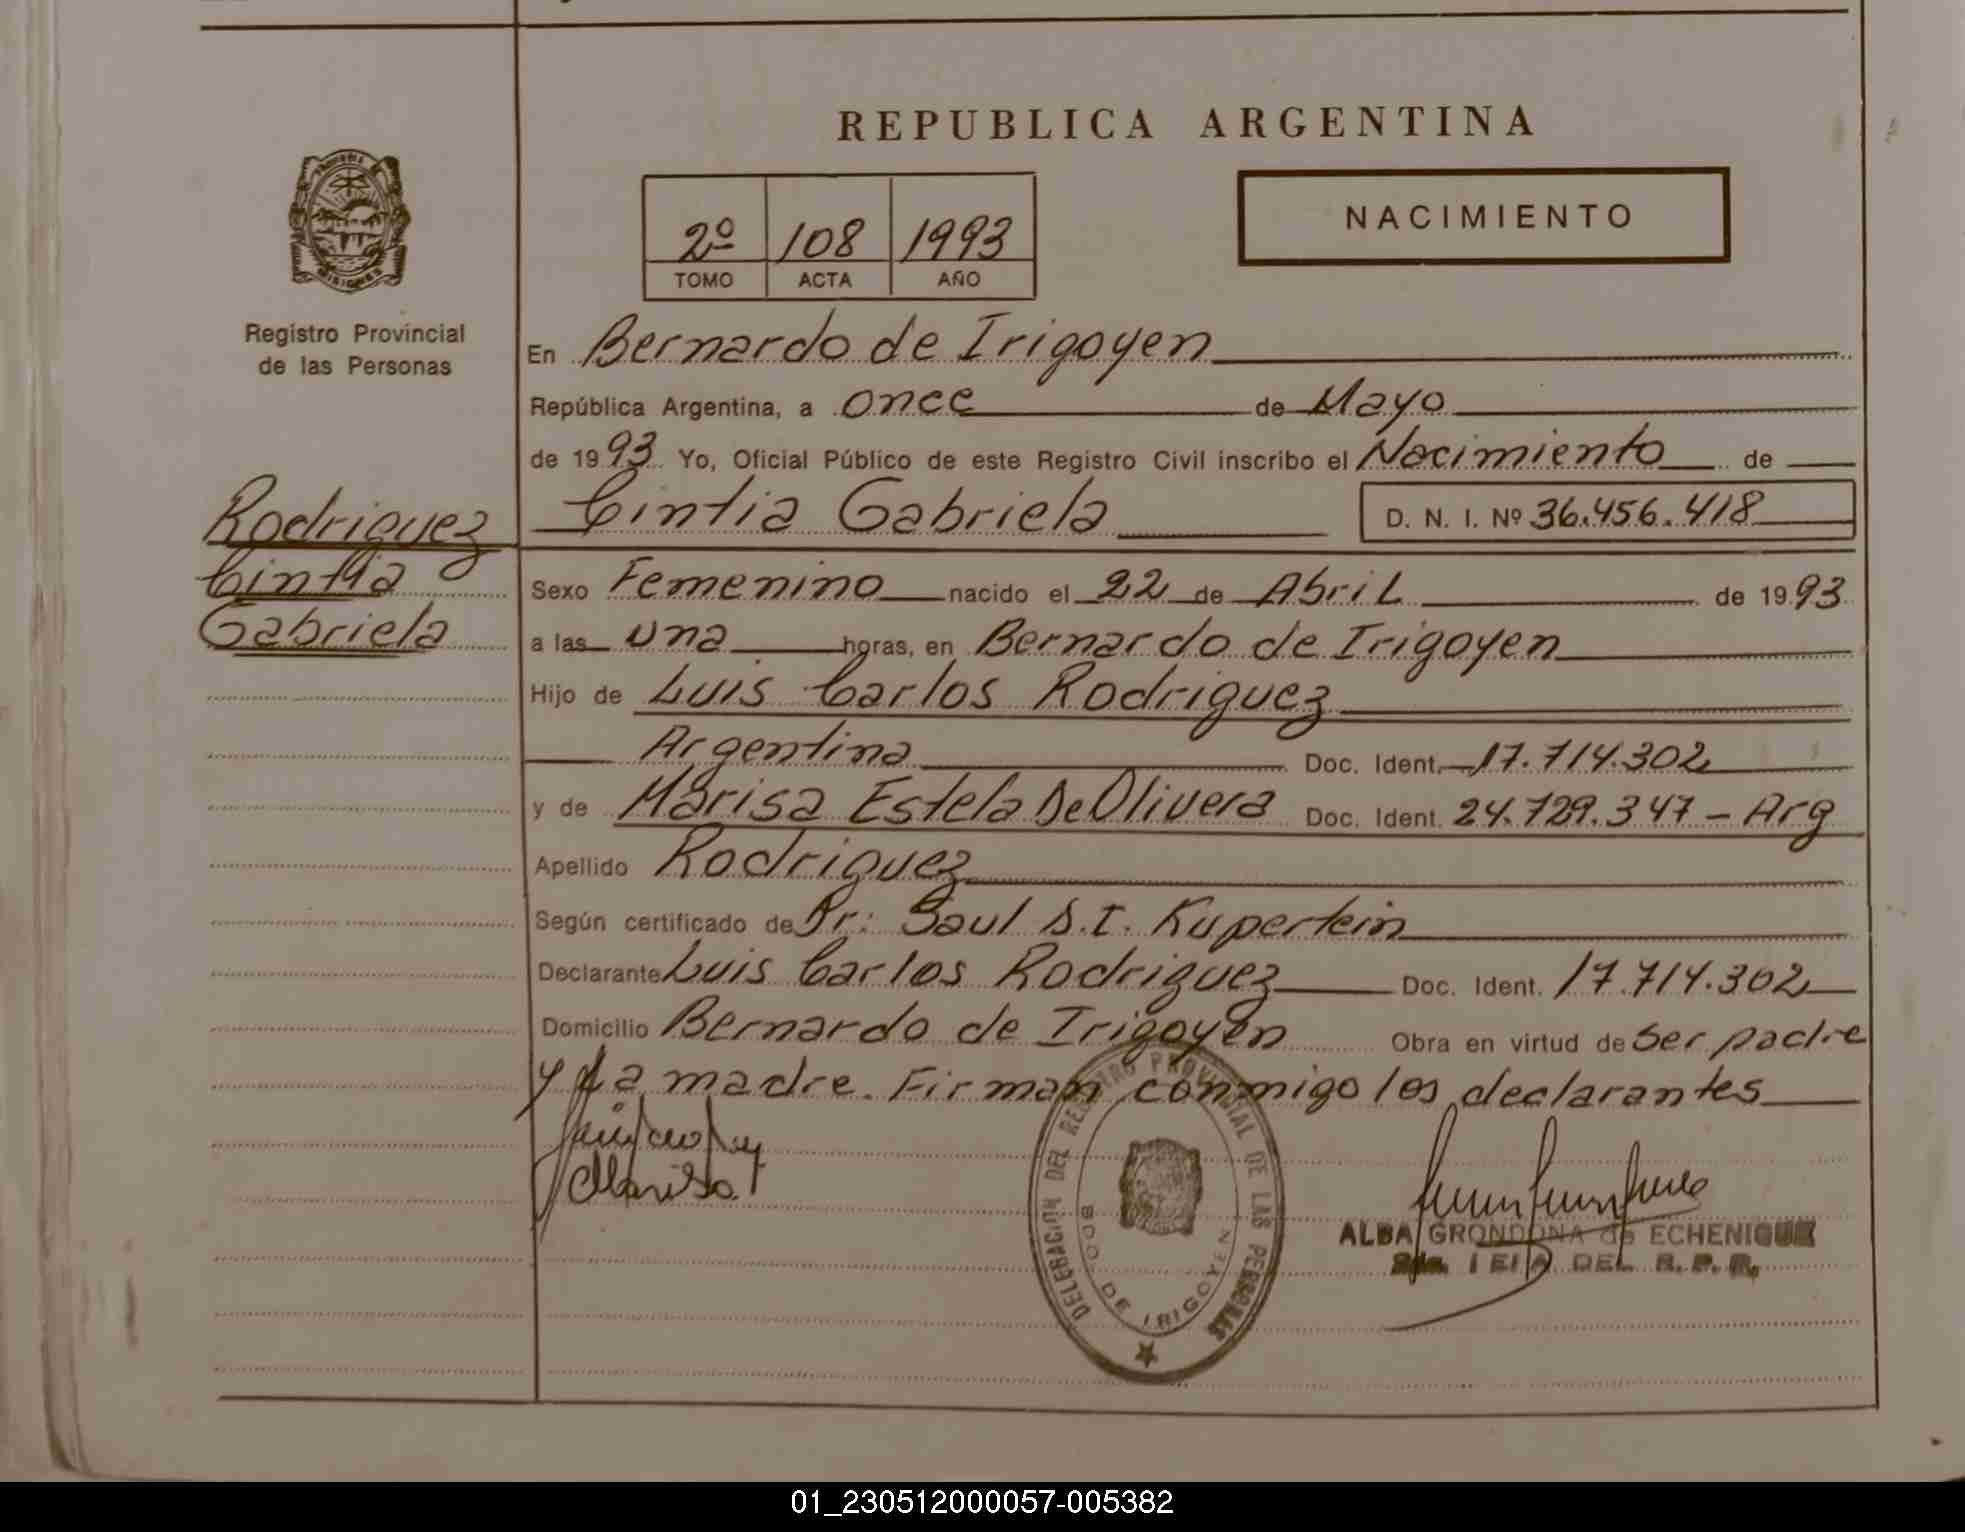 REPUBLICA ARGENTINA
2º 108 1993
TOMO ACTA AÑO
NACIMIENTO
Registro Provincial
de las Personas
Rodriguez
Cintia
Gabriela
En Bernardo de Irigoyen
República Argentina, a once de Mayo
de 1993 Yo, Oficial Público de este Registro Civil inscribo el Nacimiento de
Cintia Gabriela D. N. I. Nº 36.456.418
Sexo Femenino nacido el 22 de Abril de 1993
a las una horas, en Bernardo de Irigoyen
Hijo de Luis Carlos Rodriguez
Argentina Doc. Ident. 17.714.302
y de Marisa Estela De Olivera Doc. Ident. 24.729.347 - Arg
Apellido Rodriguez
Según certificado de Dr: Saul S.I. Kupertein
Declarante Luis Carlos Rodriguez Doc. Ident. 17.714.302
Domicilio Bernardo de Irigoyen Obra en virtud de ser padre
y La madre. Firman conmigo los declarantes
Marisa
DELEGACION DEL REGISTRO PROVINCIAL DE LAS PERSONAS
BDO. DE IRIGOYEN
ALBA GRONDONA de ECHENIQUE
DEL R. P. P.
01_230512000057-005382